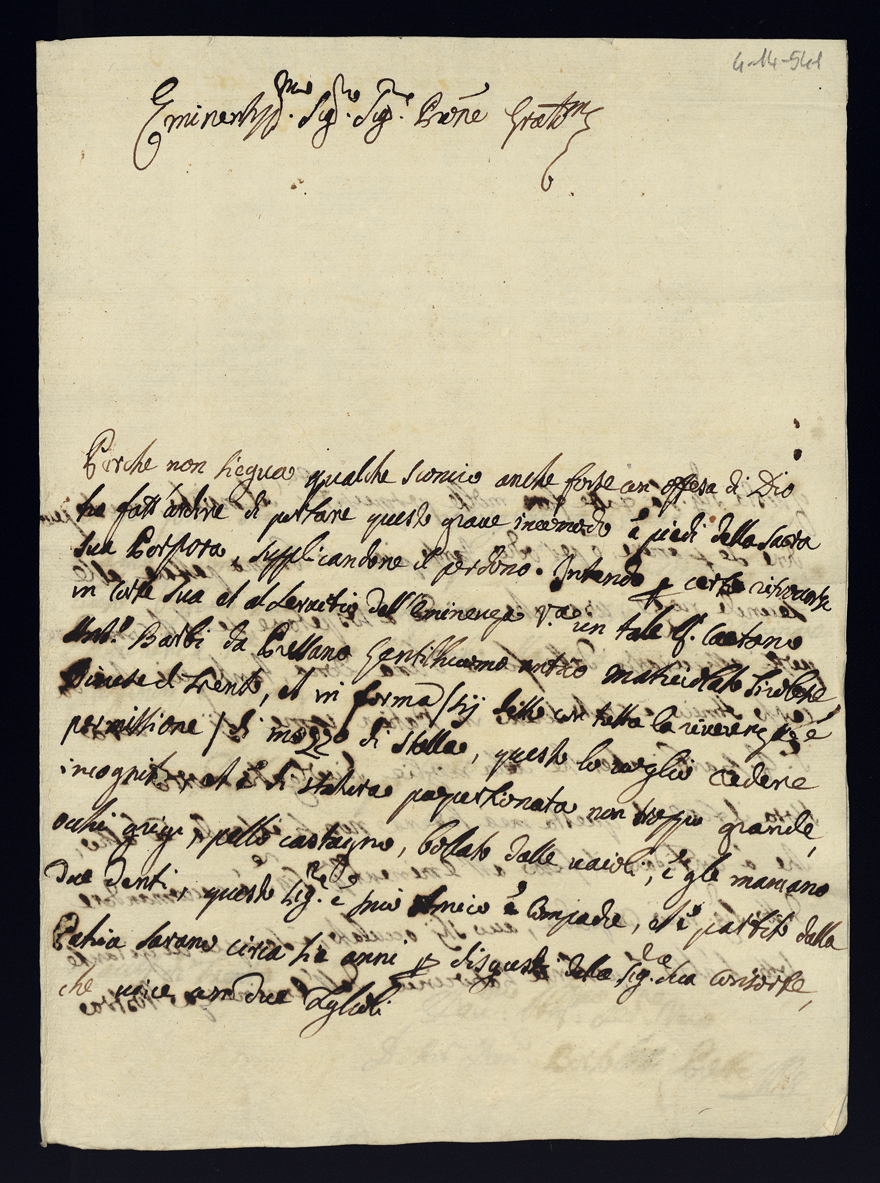 4-14-541
Eminentiss.mo Sig.re Sig.re P'rone Grat.mo
Perche non siegua qualche sconcio anche forse con offesa di Dio
ho fatt'ardire di portare questo graue incōmodo à piedi della Sacra
sua Porpora, supplicandone il perdono. Intendo p certo
in Corte sua et al seruitio dell'Eminenza V.a un tale Gaetano
Ant.o Barbi da Gentilhuomo Tirolese
Diocese di Trento, et in forma / sij detto con tutta la riuerenza è
permissione / di mozzo di stalla, questo lo uoglio credere
incognito, et è di statura proportionata non troppo grande,
occhij grigi, pello castagno, bollato dalle uaioli, è gle mancano
due denti, questo Sig.re è mio Amico è Compadre, et è partito dalla
Patria sarano circa tre anni p disgusti della Sig.ra sua consorte,
che uiue con due figlioli